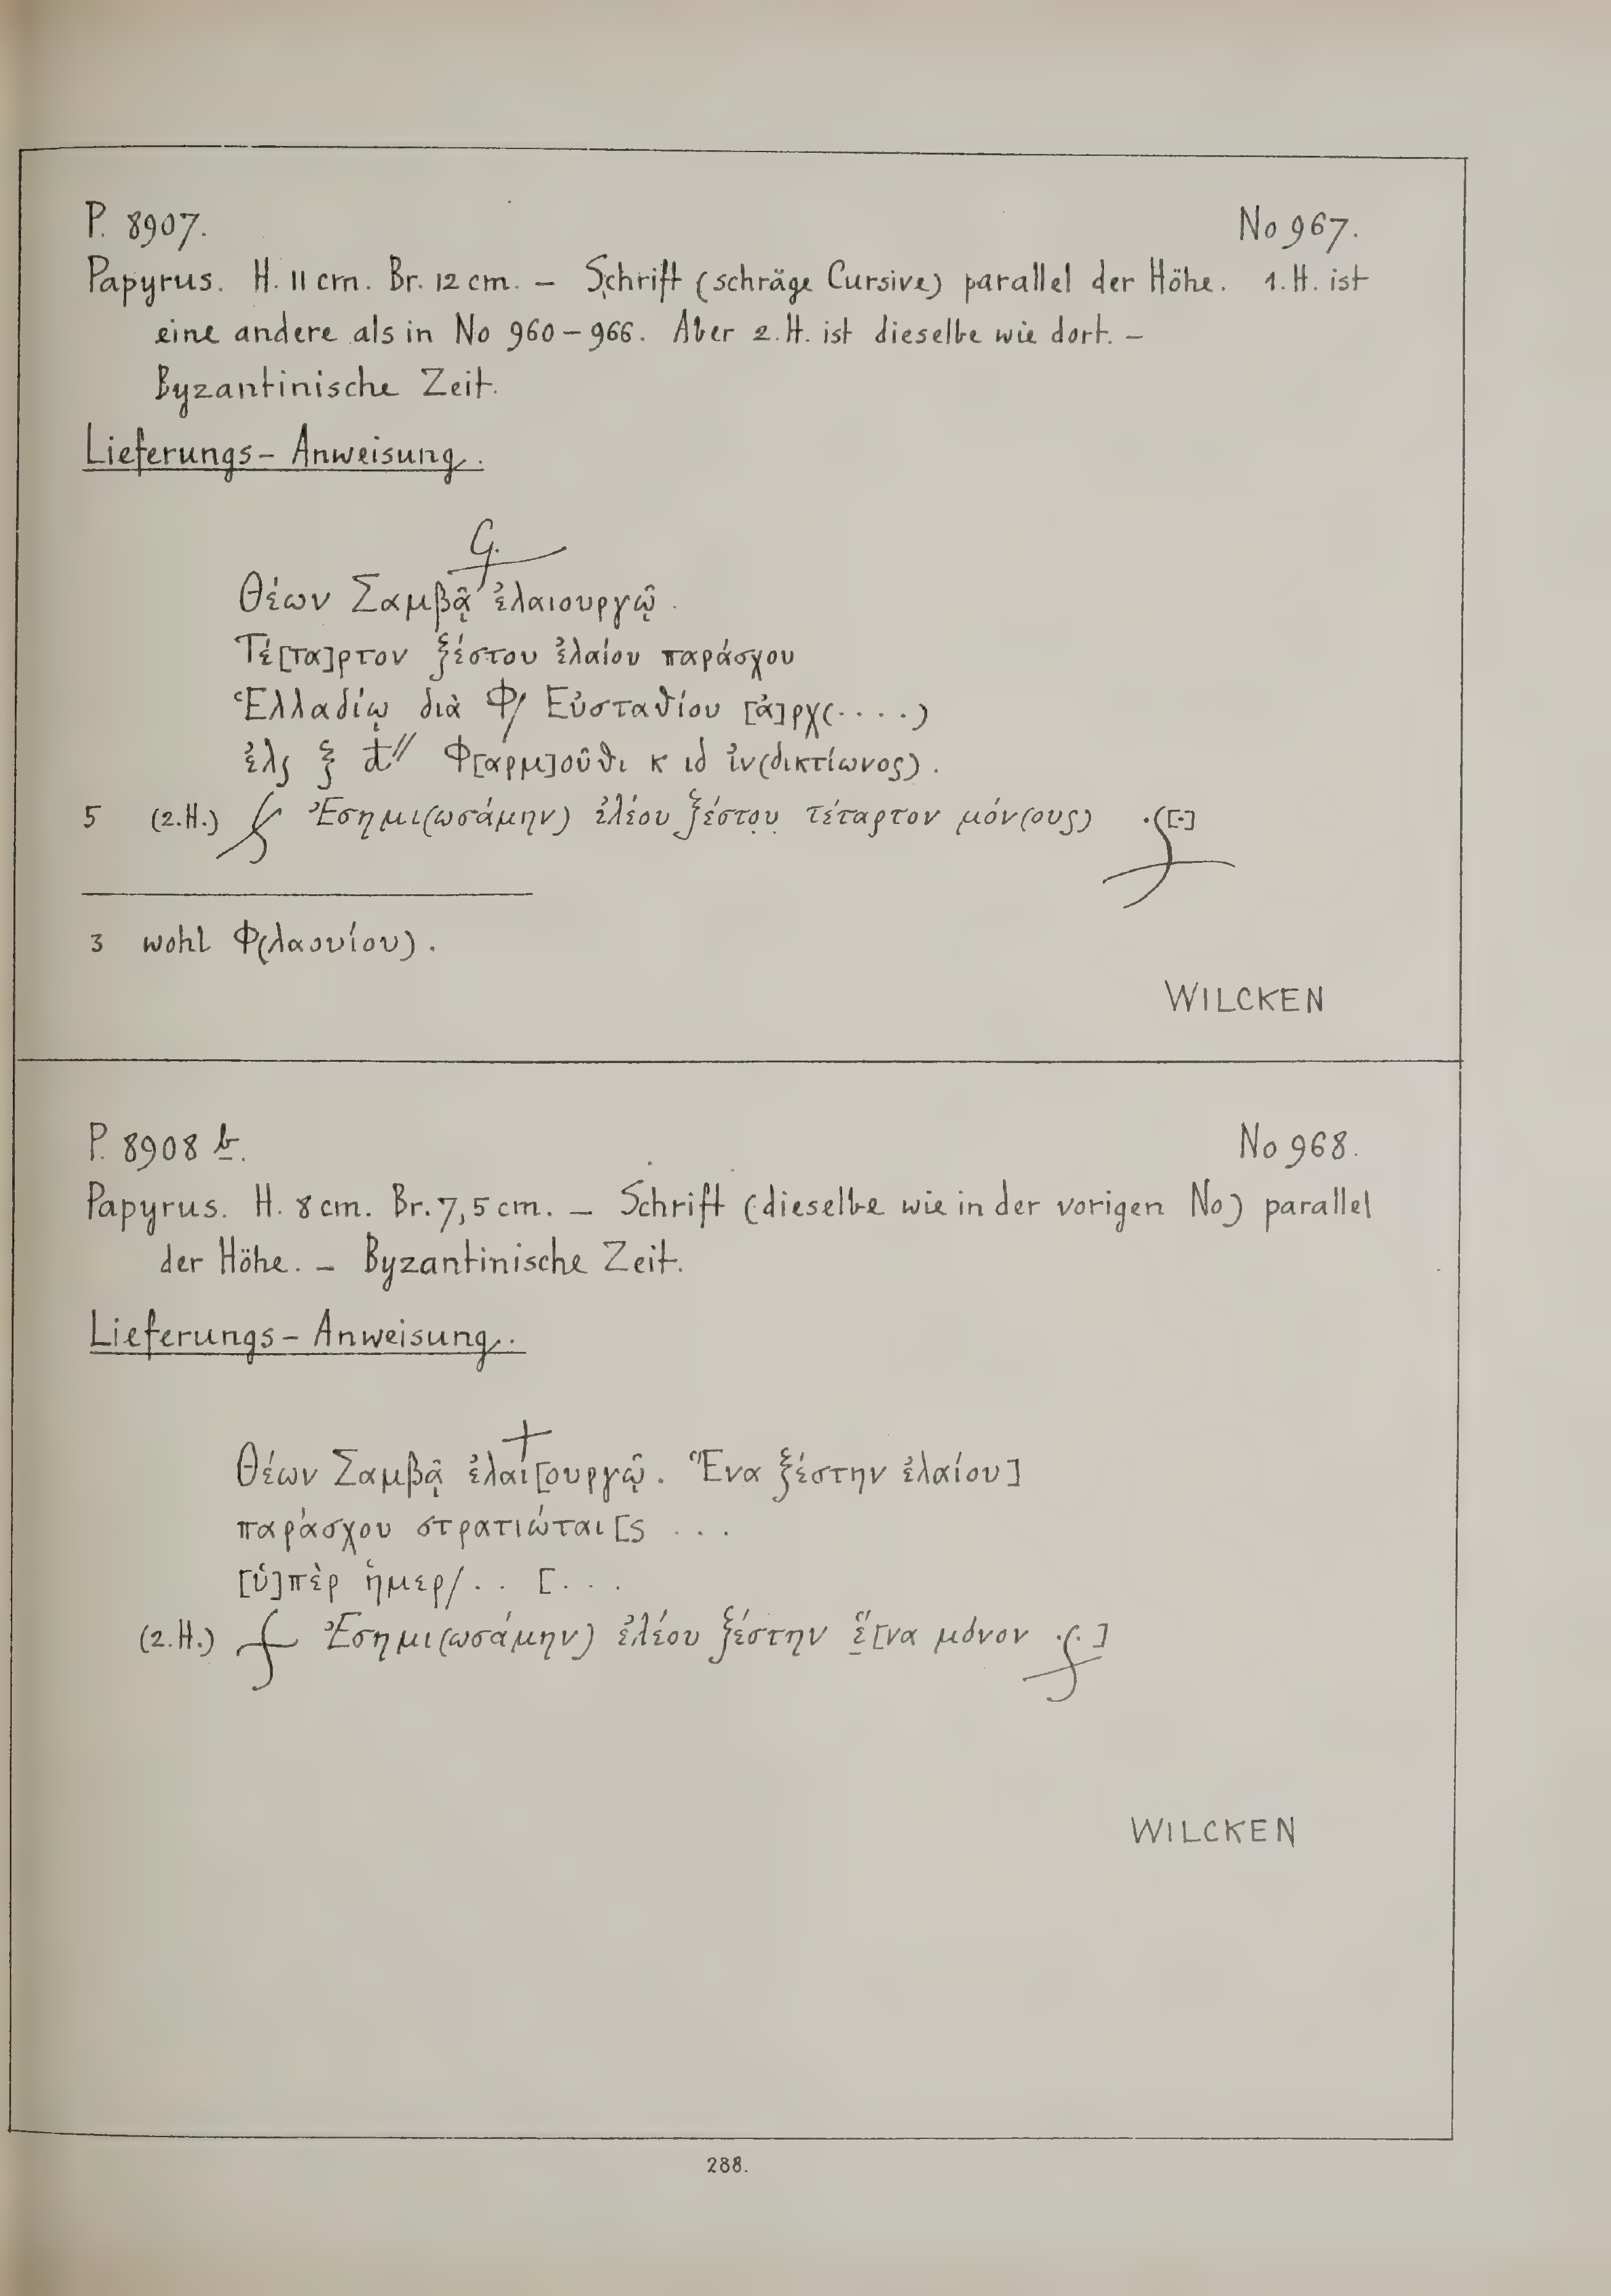 P. 8907. No 967.
Papyrus. H. 11 cm. Br. 12 cm. – Schrift (schräge Cursive) parallel der Höhe. 1. H. ist
eine andere als in No 960–966. Aber 2. H. ist dieselbe wie dort. –
Byzantinische Zeit.
Lieferungs-Anweisung.
Θέων Σαμβᾷ ἐλαιουργῷ.
Τέ[τα]ρτον ξέστου ἐλαίου παράσχου
Ἑλλαδίῳ διὰ Φ/ Εὐσταθίου [ἀ]ρχ(....)
ἐλς ξ đ// Φ[αρμ]οῦθι κ ιδ ἰν(δικτίωνος).
5 (2.H.) Ἐσημι(ωσάμην) ἐλέου ξέστου τέταρτον μόν(ους) .[.]
3 wohl Φ(λαουίου).
WILCKEN
P. 8908 b. No 968.
Papyrus. H. 8 cm. Br. 7,5 cm. – Schrift (dieselbe wie in der vorigen No) parallel
der Höhe. – Byzantinische Zeit.
Lieferungs-Anweisung.
Θέων Σαμβᾷ ἐλαι[ουργῷ. Ἕνα ξέστην ἐλαίου]
παράσχου στρατιώται[ς ...
[ὑ]πὲρ ἡμερ/.. [...
(2.H.) Ἐσημι(ωσάμην) ἐλέου ξέστην ἕ[να μόνον ..]
WILCKEN
288.